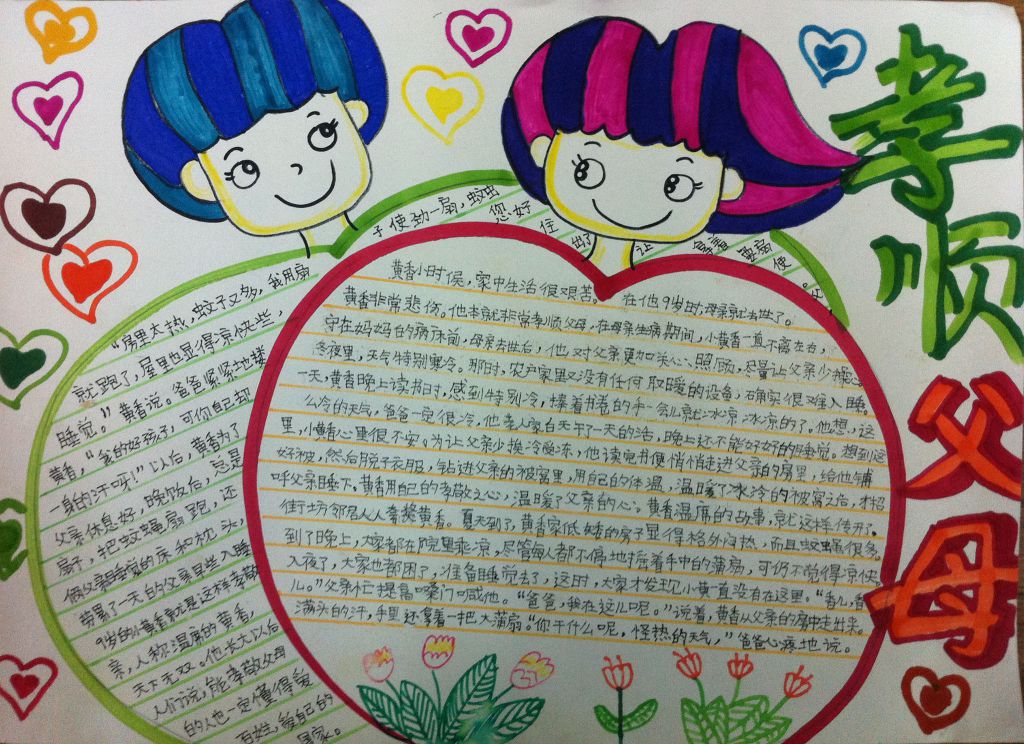 孝顺
父母
黄香小时候，家中生活很艰苦。在他9岁时，母亲就去世了。
黄香非常悲伤。他本就非常孝顺父母，在母亲生病期间，小黄香一直不离左右，
守在妈妈的病床前，母亲去世后，他对父亲更加关心、照顾，尽量让父亲少操心。
冬夜里，天气特别寒冷。那时，农户家里又没有任何取暖的设备，确实很难入睡。
一天，黄香晚上读书时，感到特别冷，捧着书卷的手一会儿就冰凉冰凉的了。他想，这
么冷的天气，爸爸一定很冷，他老人家白天干了一天的活，晚上还不能好好的睡觉。想到这
里，小黄香心里很不安。为让父亲少挨冷受冻，他读完书便悄悄走进父亲的房里，给他铺
好被，然后脱了衣服，钻进父亲的被窝里，用自己的体温，温暖了冰冷的被窝之后，才招
呼父亲睡下。黄香用自己的孝敬之心，温暖了父亲的心。黄香温席的故事，就这样传开了。
街坊邻居人人夸奖黄香。夏天到了，黄香家低矮的房子显得格外闷热，而且蚊蝇很多。
到了晚上，大家都在院里乘凉，尽管每人都不停地摇着手中的蒲扇，可仍不觉得凉快
入夜了，大家也都困了，准备睡觉去了，这时，大家才发现小黄直没有在这里。“香儿，香
儿。”父亲忙提高嗓门喊他。“爸爸，我在这儿呢。”说着，黄香从父亲的房中走出来。
满头的汗，手里还拿着一把大蒲扇。“你干什么呢，怪热的天气，”爸爸心疼地说。
“房里太热，蚊子又多，我用扇子使劲一扇，蚊虫
就跑了，屋里也显得凉快些，您好
睡觉。”黄香说。爸爸紧紧地搂住
黄香，“我的好孩子，可你自己却出了
一身的汗呀！”以后，黄香为了让
父亲休息好，晚饭后，总是拿着扇
子，把蚊蝇扇跑，还要扇
凉父亲睡觉的床和枕头，使
劳累了一天的父亲早些入睡。
9岁的小黄香就是这样孝敬父
亲，人称温席的黄香，
天下无双。他长大以后
人们说，能孝敬父母
的人也一定懂得爱
百姓，爱自己的
国家。